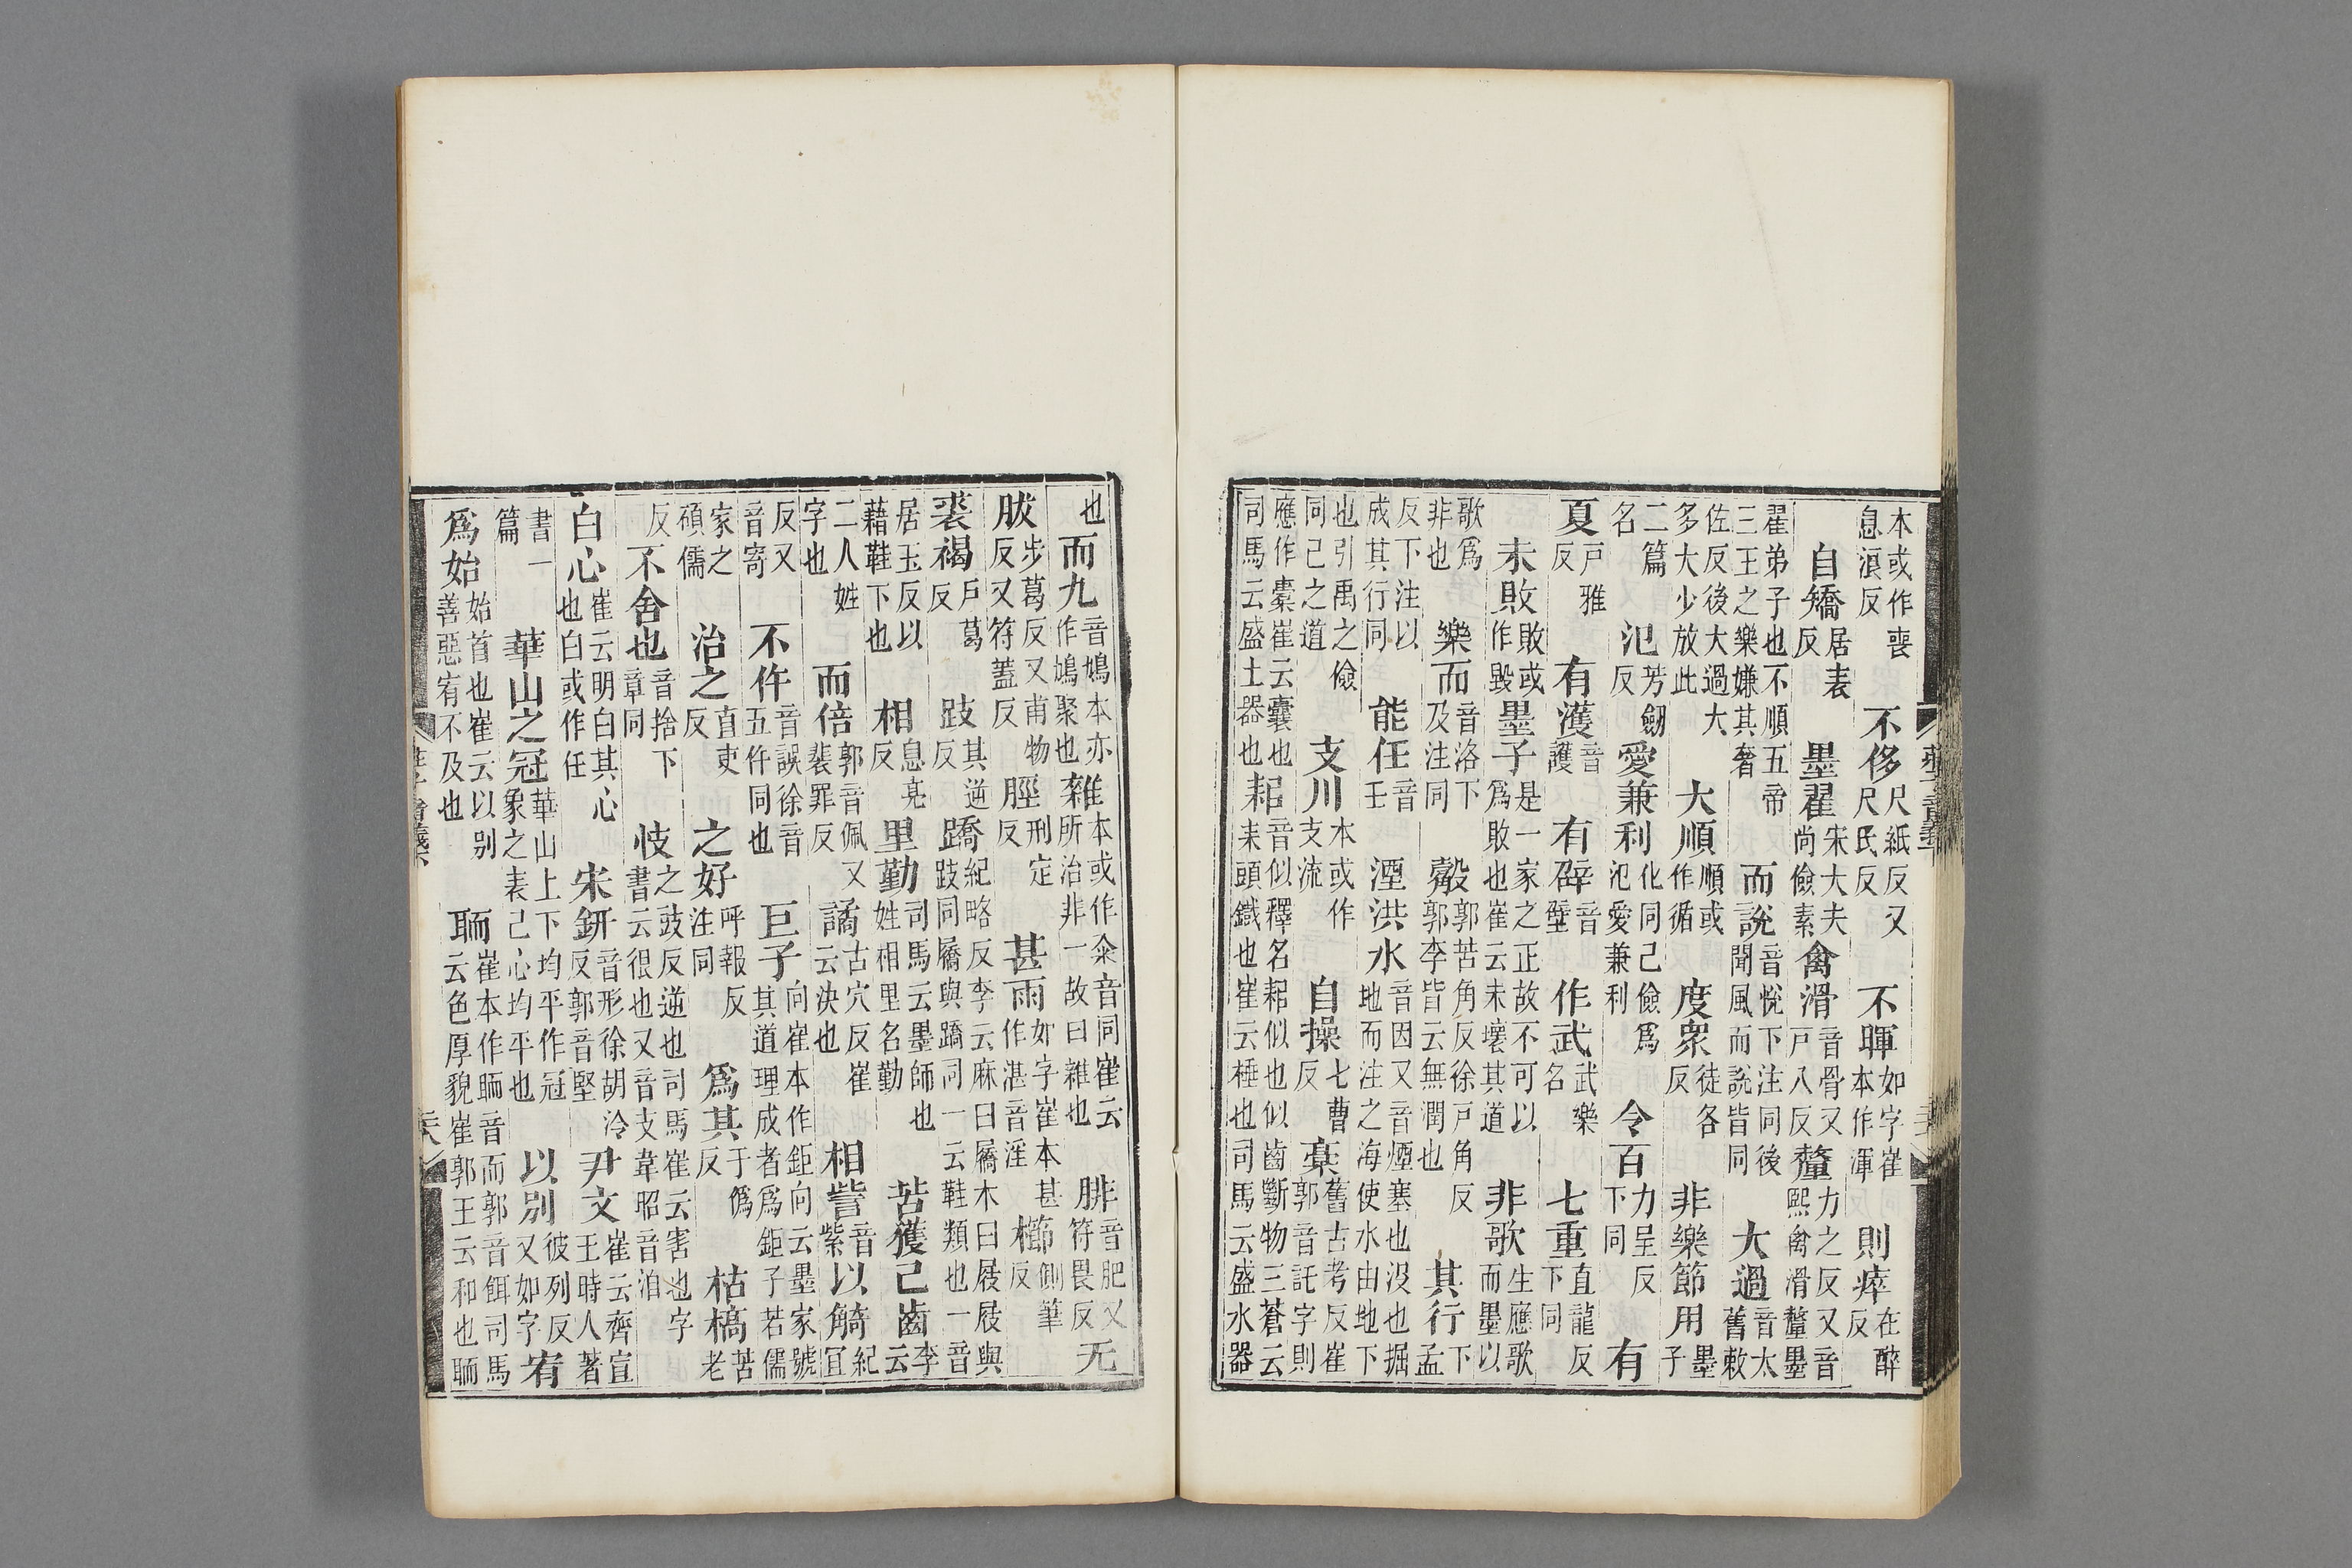 本或作喪息浪反 不侈尺紙反又尺氏反 不暉如字崔本作渾 則瘁在醉反
自矯居表反 墨翟宋大夫尚儉素 禽滑音骨又戸八反 釐力之反又音熙禽滑釐墨
翟弟子也不順五帝三王之樂嫌其奢 而說音悅下注同後聞風而說皆同 大過音太舊敕
佐反後大過大多大少放此 大順順或作循 度衆徒各反 非樂節用墨子
二篇名 氾芳劒反 愛兼利化同己儉爲氾愛兼利 令百力呈反下同 有
夏戸雅反 有濩音護 有辟音壁 作武武樂名 七重直龍反下同
未敗敗或作毀 墨子是一家之正故不可以爲敗也崔云未壞其道 非歌生應歌而墨以
歌爲非也 樂而音洛下及注同 觳郭苦角反徐戸角反郭李皆云無潤也 其行下孟
反下注以成其行同 能任音壬 湮洪水音因又音煙塞也没也掘地而注之海使水由地下
也引禹之儉同己之道 支川本或作支流 自操七曹反 橐舊古考反崔郭音託字則
應作橐崔云囊也司馬云盛土器也 耜音似釋名耜似也似齒斷物三蒼云耒頭鐵也崔云棰也司馬云盛水器
也 而九音鳩本亦作鳩聚也 雜本或作籴音同崔云所治非一故曰雜也 腓音肥又符畏反 无
胈步葛反又甫物反又符蓋反 脛刑定反 甚雨如字崔本甚作湛音淫 櫛側筆反
裘褐戸葛反 跂其逆反 蹻紀略反李云麻曰屩木曰屐屐與跂同屩與蹻同一云鞋類也一音
居玉反以藉鞋下也 相息亮反 里勤司馬云墨師也姓相里名勤 苦獲己齒李云
二人姓字也 而倍郭音佩又裴罪反 譎古穴反崔云決也 相訾音紫 以觭紀宜
反又音寄 不仵音誤徐音五仵同也 巨子向崔本作鉅向云墨家號其道理成者爲鉅子若儒
家之碩儒 治之直吏反 之好呼報反注同 爲其于僞反 枯槁苦老
反 不舍也音捨下章同 忮之豉反逆也司馬崔云害也字書云很也又音支韋昭音洎
白心崔云明白其心也白或作任 宋鈃音形徐胡泠反郭音堅 尹文崔云齊宣王時人著
書一篇 華山之冠華山上下均平作冠象之表己心均平也 以别彼列反又如字 宥
爲始始首也崔云以别善惡宥不及也 聏崔本作聏音而郭音餌司馬云色厚貌崔郭王云和也聏